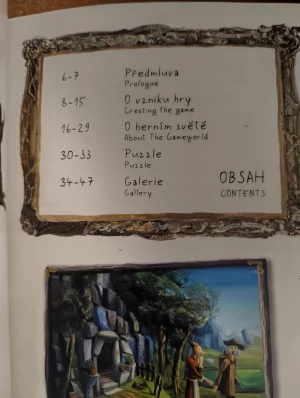 6-7 Předmluva
Prologue
8-15 O vzniku hry
Creating the game
16-29 O herním světě
About The Gameworld
30-33 Puzzle
Puzzle
34-47 Galerie
Gallery
OBSAH
CONTENTS